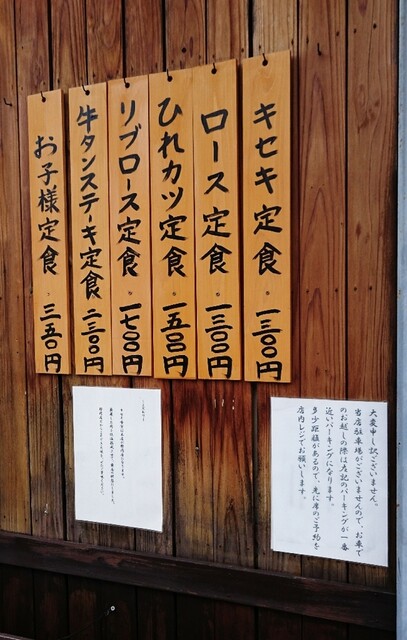 キセキ定食 一三〇〇円
ロース定食 一三〇〇円
ひれカツ定食 一五〇〇円
リブロース定食 一七〇〇円
牛タンステーキ定食 二三〇〇円
お子様定食 三五〇円
大変申し訳ございません。
当店駐車場がございませんので、お車で
のお越しの際は左記のパーキングが一番
近いパーキングになります。
多少距離があるので、先に席のご予約を
店内レジでお願いします。